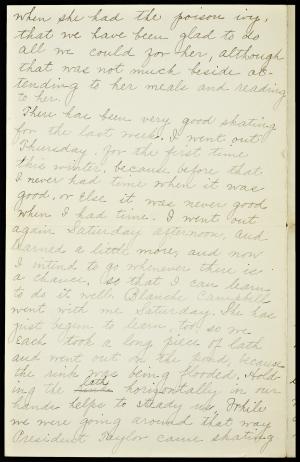 when she had the poison ivy,
that we have been glad to do
all we could for her, although
that was not much beside at-
tending to her meals and reading
to her.
There has been very good skating
for the last week. I went out
Thursday for the first time
this winter, because before that
I never had time when it was
good, or else it was never good
when I had time. I went out
again Saturday afternoon, and
learned a little more, and now
I intend to go whenever there is
a chance, so that I can learn
to do it well. Blanche Campbell
went with me Saturday. She has
just begun to learn, too, so we
each took a long piece of lath
and went out on the pond, because
the rink was being flooded. Hold-
ing the lath horizontally in our
hands helps to steady us. While
we were going around that way
President Taylor came skating